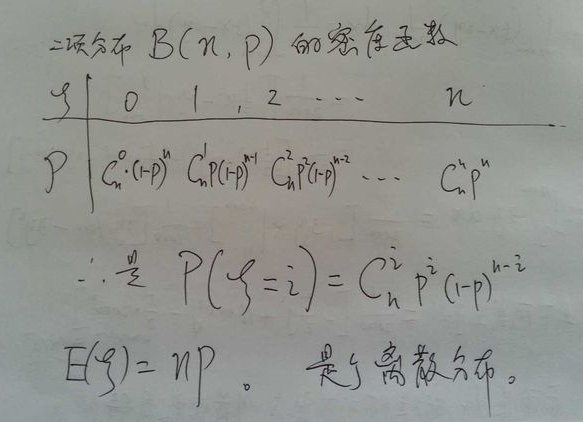 二项分布 B(n, p) 的密度函数
ξ 0 1 , 2 ... n
P C_n^0·(1-p)^n C_n^1 p(1-p)^{n-1} C_n^2 p^2(1-p)^{n-2} ... C_n^n p^n
∴是 P(ξ=i) = C_n^i p^i (1-p)^{n-i}
E(ξ) = np 。 是个离散分布。